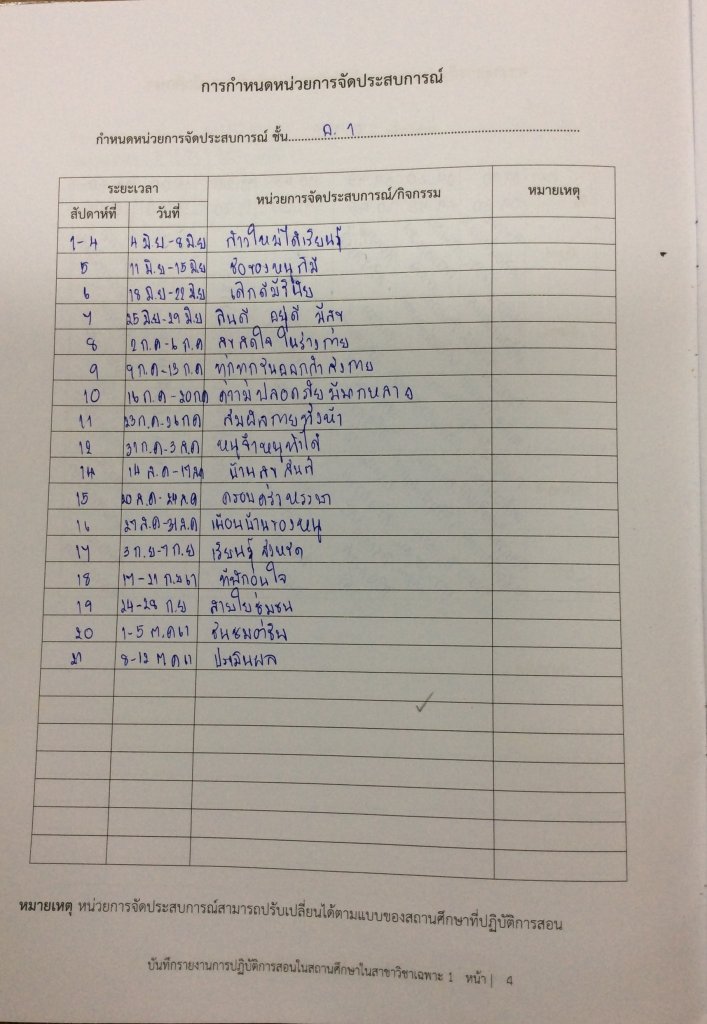 การกำหนดหน่วยการจัดประสบการณ์
กำหนดหน่วยการจัดประสบการณ์ ชั้น อ. 1
ระยะเวลา หน่วยการจัดประสบการณ์/กิจกรรม หมายเหตุ
สัปดาห์ที่ วันที่
1-4 4 มิ.ย-8 มิย ก้าวใหม่ได้เรียนรู้
5 11 มิ.ย-15 มิย ชื่อของหนูก็มี
6 18 มิ.ย-22 มิย เด็กดีมีวินัย
7 25 มิย-29 มิย กินดี อยู่ดี มีสุข
8 2 ก.ค-6 ก.ค สุขสดใส ในร่างกาย
9 9 ก.ค-13 ก.ค ทุกทุกวันออกกำลังกาย
10 16 ก.ค-20 กค ความปลอดภัยมีมากหลาย
11 23 ก.ค-26 กค สัมผัสกายทั้งห้า
12 31 ก.ค-3 ส.ค หนูจ๋าหนูทำได้
14 14 ส.ค-17 สค บ้านสุขสันต์
15 20 ส.ค-24 ส.ค ครอบครัวหรรษา
16 27 ส.ค-31 ส.ค เพื่อนบ้านของหนู
17 3 ก.ย-7 ก.ย เรียนรู้
18 17-21 ก.ย 61 ที่พักอุ่นใจ
19 24-28 ก.ย สายใยชุมชน
20 1-5 ต.ค 61
21 8-12 ต.ค 61 ประเมินผล
หมายเหตุ หน่วยการจัดประสบการณ์สามารถปรับเปลี่ยนได้ตามแบบของสถานศึกษาที่ปฏิบัติการสอน
บันทึกรายงานการปฏิบัติการสอนในสถานศึกษาในสาขาวิชาเฉพาะ 1 หน้า | 4